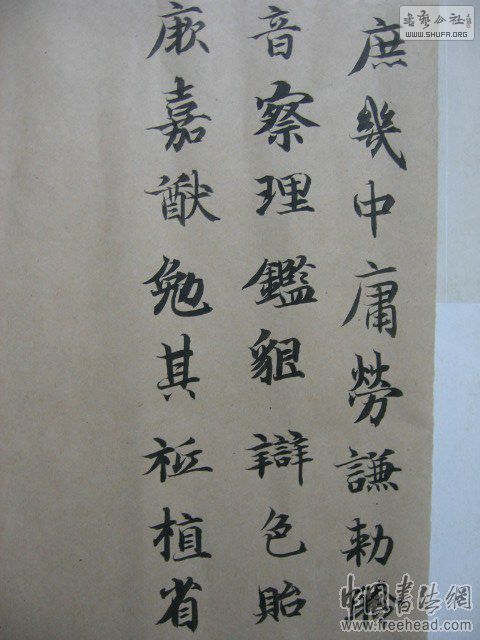 庶幾中庸勞謙勅
音察理鑑貌辯色貽
厥嘉猷勉其祗植省
书艺公社
WWW.SHUFA.ORG
中国书法網
www.freehead.com